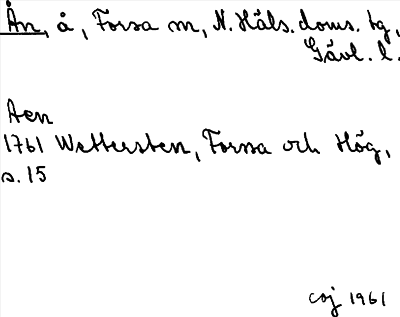 Ån, å, Forsa sn, N. Häls. doms. tg,
Gävl. l.
Aen
1761 Wettersten, Forssa och Hög,
s. 15
coj 1961